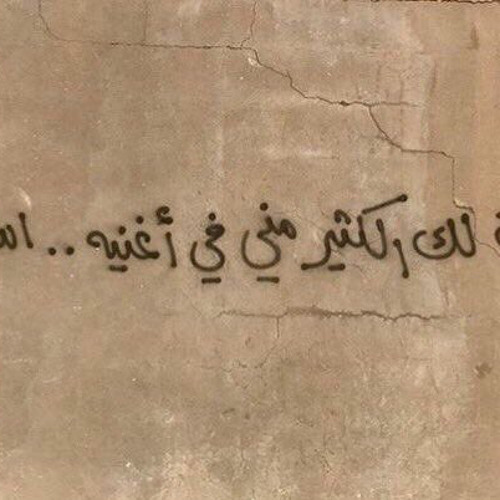 لك الكثير مني في أغنيه ..